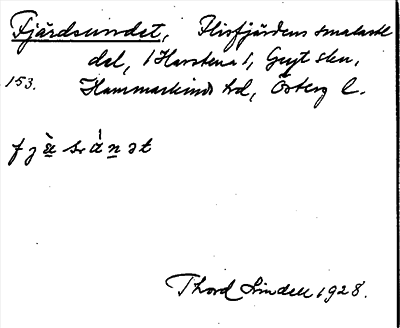 Fjärdsundet, Flisfjärdens smalaste
del, / Harstena /, Gryt skn,
153. Hammarkinds hd, Österg l.
Thord Lindell 1928.